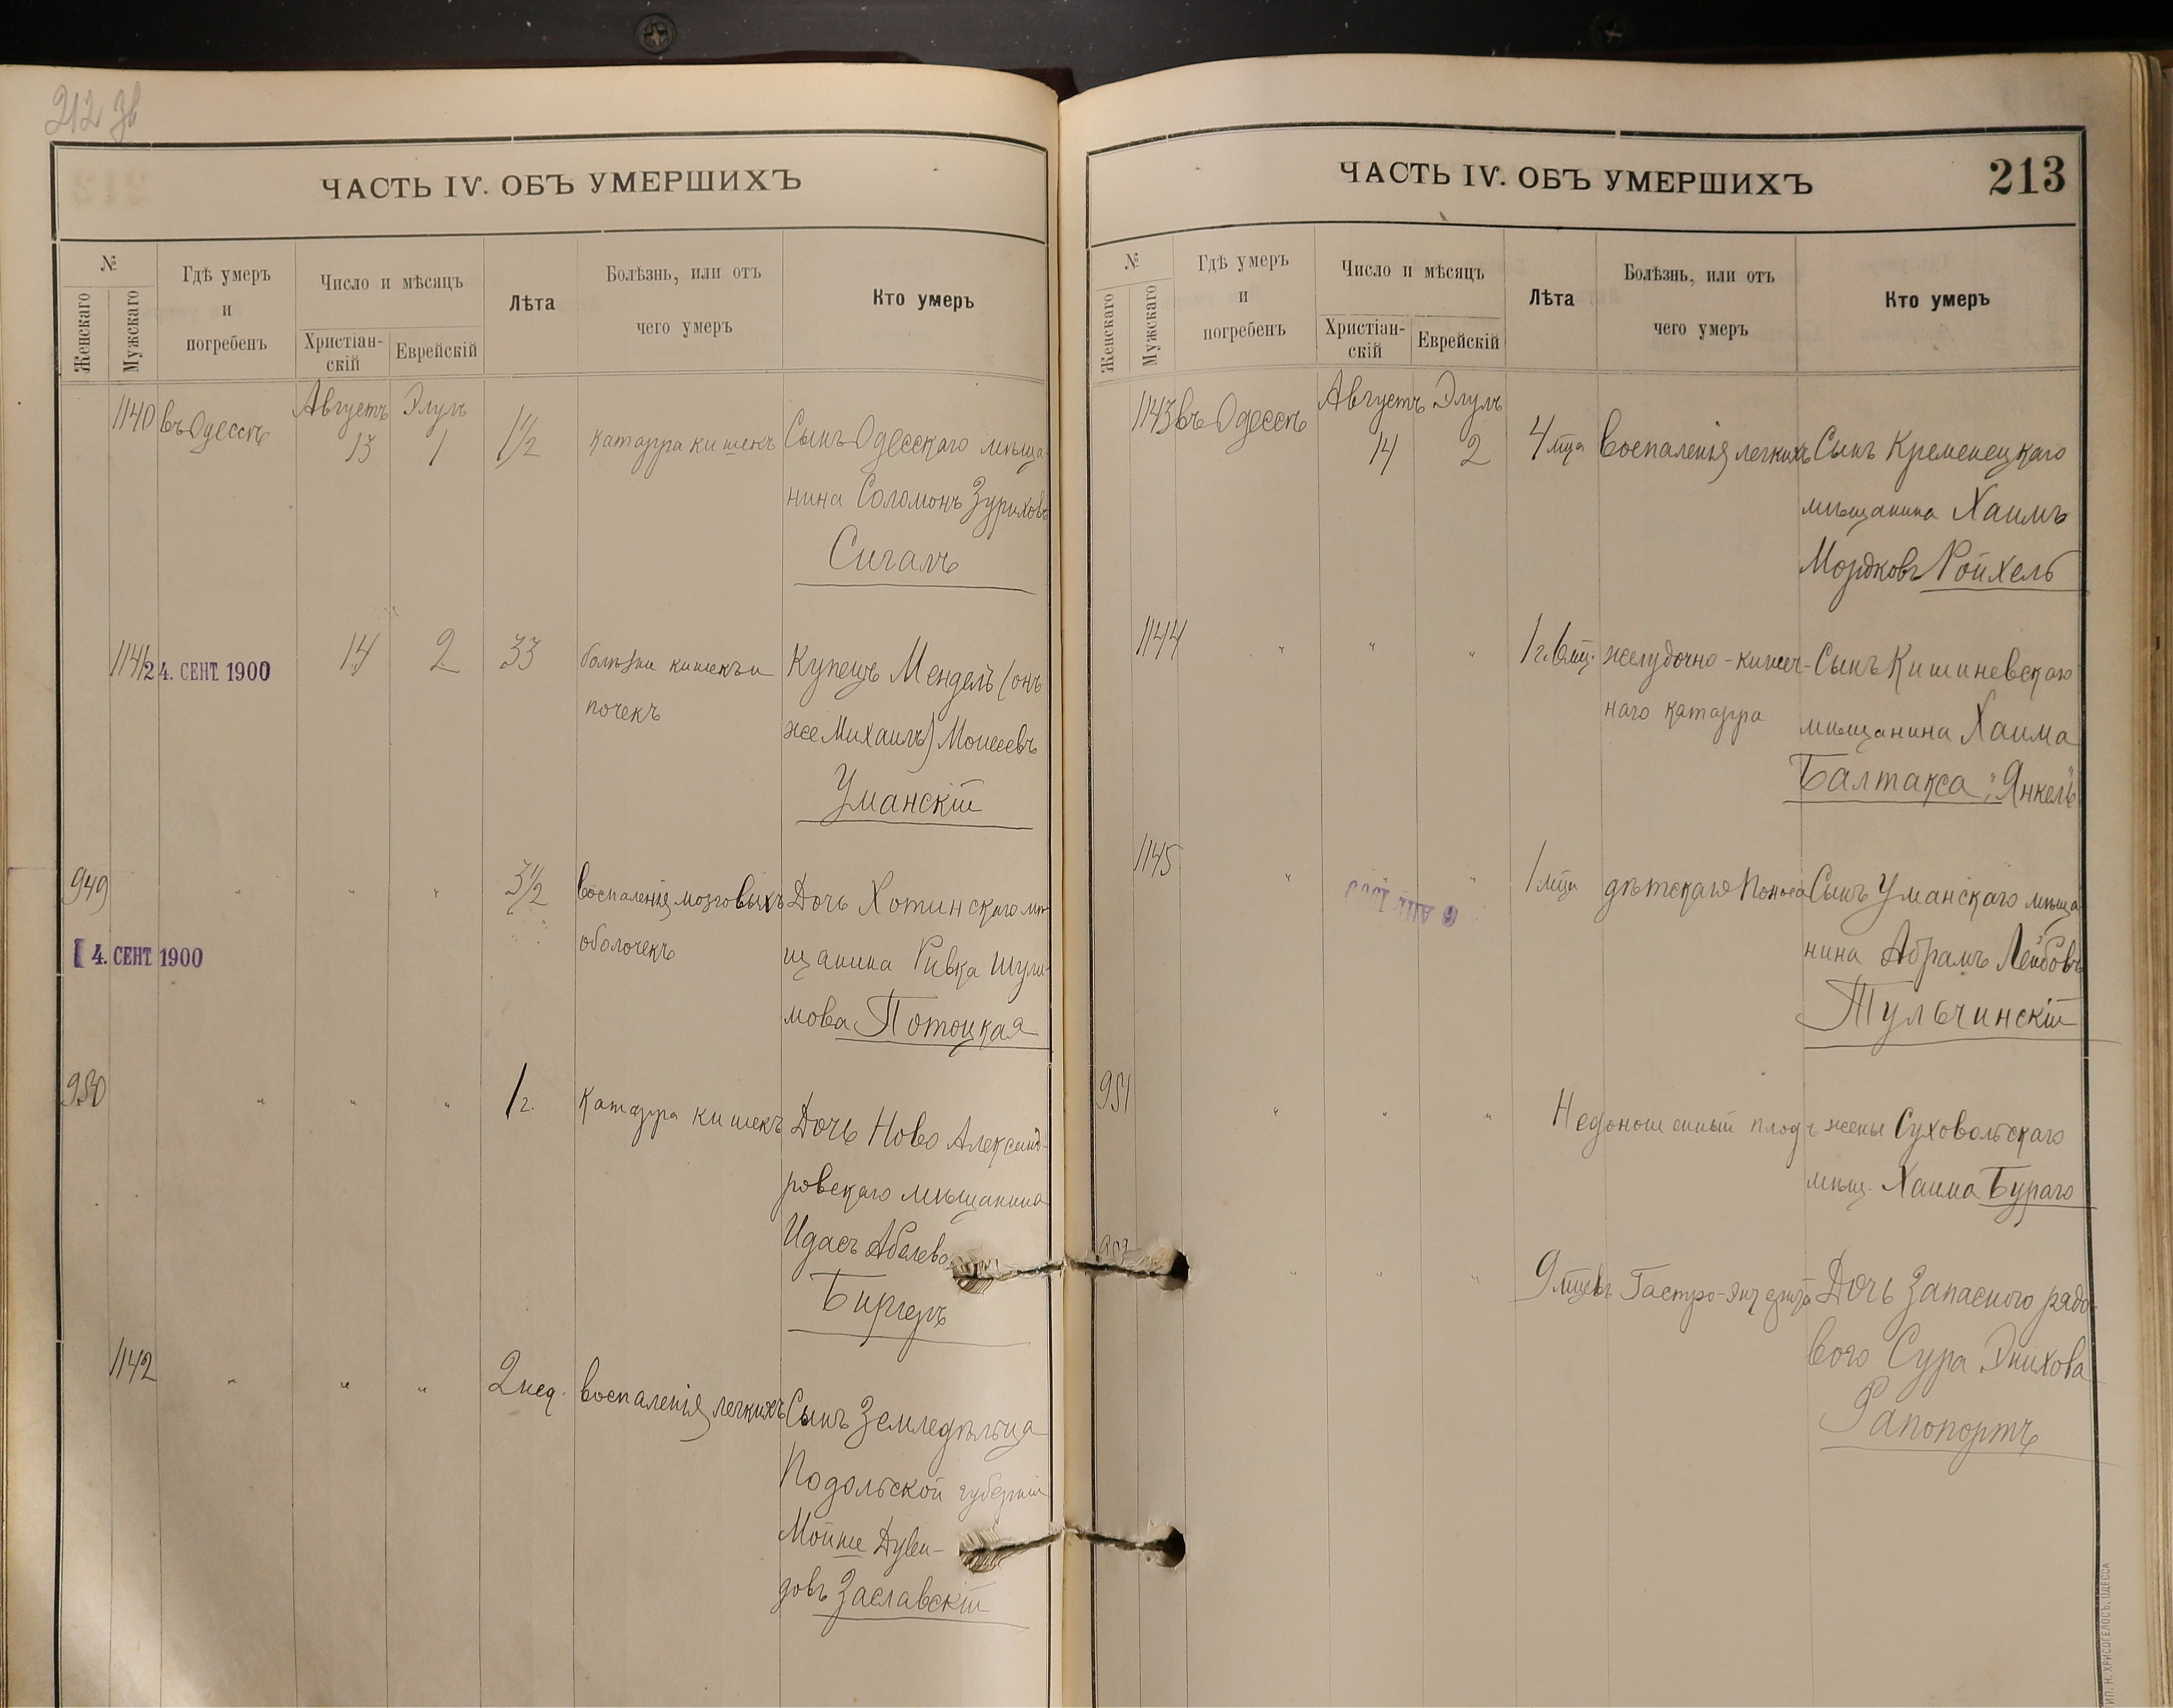 212 зв
ЧАСТЬ IV. ОБЪ УМЕРШИХЪ
№
Женскаго
Мужскаго
Гдѣ умеръ
и
погребенъ
Число и мѣсяцъ
Христіан-
скій
Еврейскій
Лѣта
Болѣзнь, или отъ
чего умеръ
Кто умеръ
1140 въ Одессѣ Августъ Элулъ
13 1 1½ катарра кишекъ Сынъ Одесскаго мѣща-
нина Соломонъ Зуриховъ
Сигалъ
1141 14 2 33 болѣзни кишекъ и Купецъ Мендель (онъ
24. СЕНТ. 1900
почекъ же Михаилъ) Моисеевъ
Уманскій
949 " " " 3½ воспаленія мозговыхъ Дочь Хотинскаго мѣ-
4. СЕНТ 1900
оболочекъ щанина Ривка Шули-
мова Потоцкая
950 " " " 1 г. Катарра кишекъ Дочь Ново Александ-
ровскаго мѣщанина
Идасъ Абелева
Биргеръ
1142 " " " 2 нед. воспаленія легкихъ Сынъ Земледѣльца
Подольской губерніи
Мойше Дуви-
довъ Заславскій
ЧАСТЬ IV. ОБЪ УМЕРШИХЪ
213
№
Женскаго
Мужскаго
Гдѣ умеръ
и
погребенъ
Число и мѣсяцъ
Христіан-
скій
Еврейскій
Лѣта
Болѣзнь, или отъ
чего умеръ
Кто умеръ
1143 въ Одессѣ Августъ Элулъ
14 2 4 мца воспаленія легкихъ Сынъ Кременецкаго
мѣщанина Хаимъ
Мордковъ Ройхель
1144 " " " 1 г. 6 мц. желудочно-кишеч- Сынъ Кишиневскаго
наго катарра мѣщанина Хаима
Балтакса „Янкель"
1145 " " 1 мца дѣтскаго поноса Сынъ Уманскаго мѣща-
нина Абрамъ Лейбовъ
Тульчинскій
951 " " " Недоношенный плодъ жены Суховольскаго
мѣщ. Хаима Бураго
952 " " " 9 мцевъ Гастро-энтерита Дочь Запаснаго рядо-
вого Сура Эниxова
Рапопортъ
ТИП. Н. ХРИСОГЕЛОСЪ, ОДЕССА